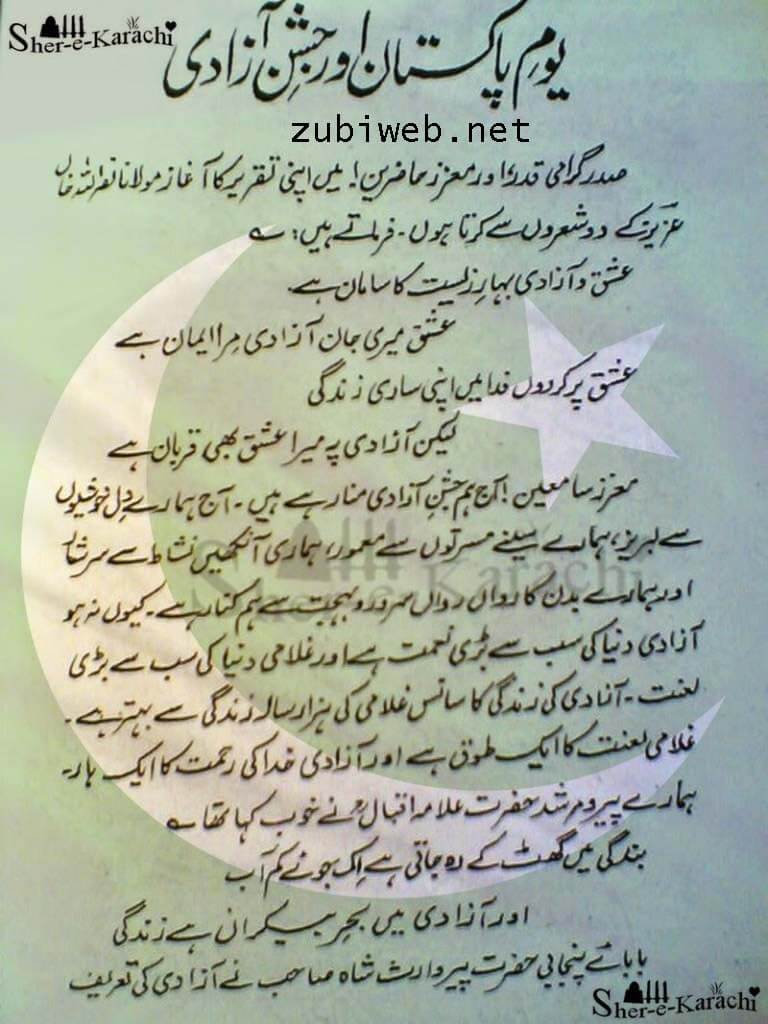 Sher-e-Karachi
یومِ پاکستان اور جشنِ آزادی
zubiweb.net
صدر گرامی قدر، اور معزز حاضرین! میں اپنی تقریر کا آغاز مولانا نصراللہ خاں
عزیز کے دو شعروں سے کرتا ہوں۔ فرماتے ہیں: ؎
عشق و آزادی بہارِ زلیست کا سامان ہے
عشق میری جان آزادی مِرا ایمان ہے
عشق پر کر دوں فدا میں اپنی ساری زندگی
لیکن آزادی پہ میرا عشق بھی قربان ہے
معزز سامعین! آج ہم جشنِ آزادی منا رہے ہیں۔ آج ہمارے دِل خوشیوں
سے لبریز، ہمارے سینے مسرتوں سے معمور، ہماری آنکھیں نشاط سے سرشار
اور ہمارے بدن کا رواں رواں سرور و بہجت سے ہم کنار ہے۔ کیوں نہ ہو
آزادی دنیا کی سب سے بڑی نعمت ہے اور غلامی دنیا کی سب سے بڑی
لعنت۔ آزادی کی زندگی کا سانس غلامی کی ہزار سالہ زندگی سے بہتر ہے۔
غلامی لعنت کا ایک طوق ہے اور آزادی خدا کی رحمت کا ایک ہار۔
ہمارے پیر و مرشد حضرت علامہ اقبالؒ نے خوب کہا تھا ؎
بندگی میں گھٹ کے رہ جاتی ہے اِک جوئے کم آب
اور آزادی میں بحرِ بیکراں ہے زندگی
بابائے پنجابی حضرت پیر وارث شاہ صاحب نے آزادی کی تعریف
Sher-e-Karachi
Sher-e-Karachi